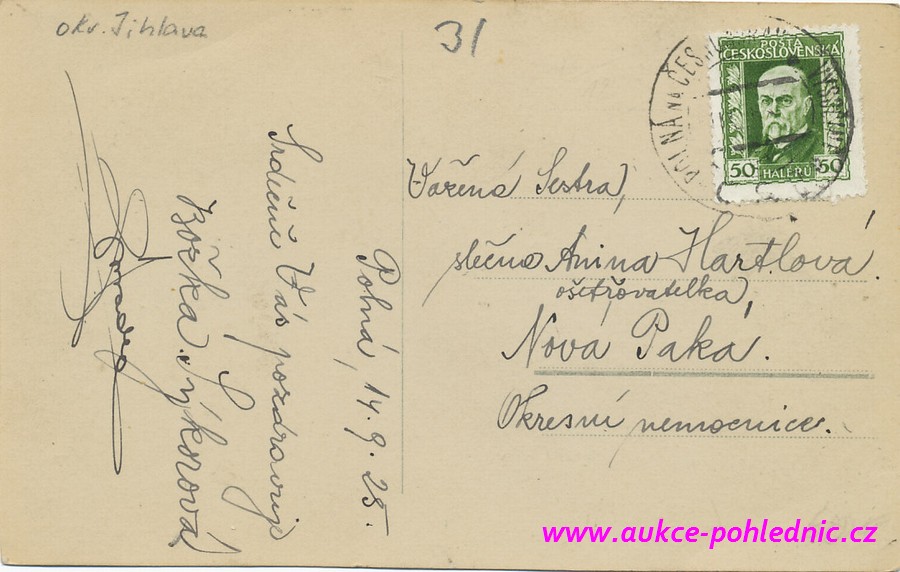 okr. Jihlava
31
POŠTA
ČESKOSLOVENSKÁ
50 HALÉŘŮ 50
POLNÁ
Vážená Sestra,
slečna Anina Hartlová.
ošetřovatelka,
Nová Paka.
Okresní nemocnice.
Polná, 14.9.25.
Srdečně Vás pozdravuje
Božka Sýkorová
www.aukce-pohlednic.cz